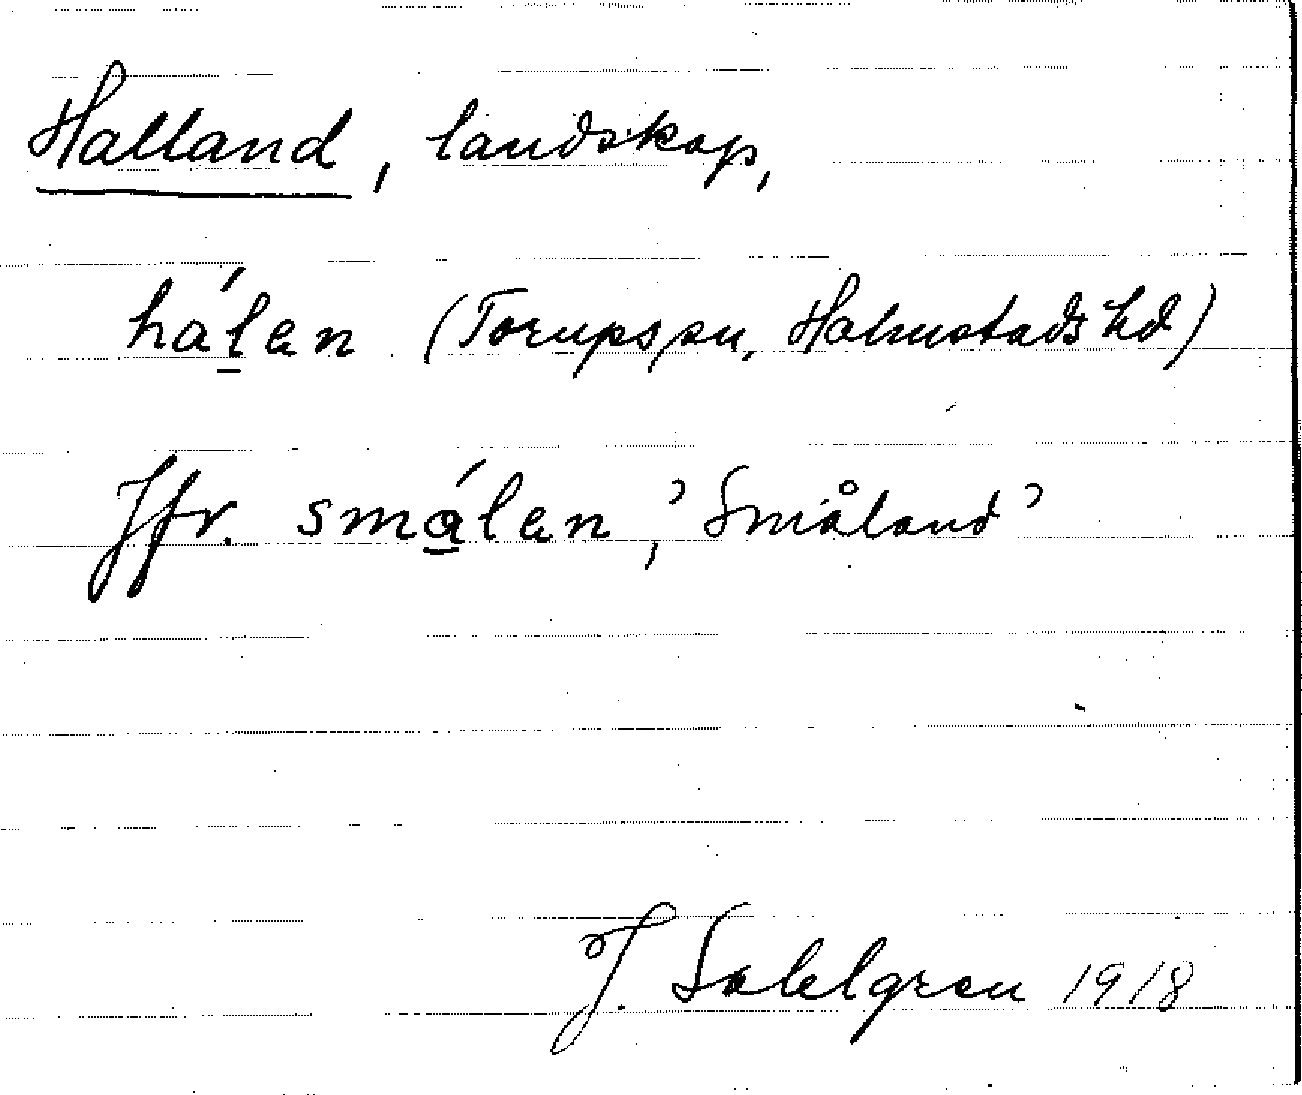 Halland, landskap,
hál̠en (Torupssn, Halmstads hd)
Jfr. smá̠len, 'Småland'
J. Sahlgren 1918